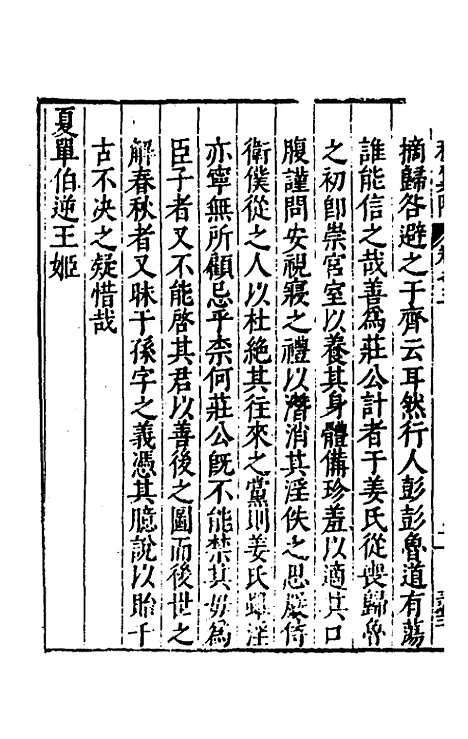 摘歸咎避之于齊云耳然行人彭彭魯道有蕩
誰能信之哉善為莊公計者于姜氏從喪歸魯
之初卽崇宮室以養其身體備珍羞以適其口
腹謹問安視寢之禮以潛消其淫佚之思嚴侍
衛僕從之人以杜絶其往來之黨則姜氏歸淫
亦寧無所顧忌乎柰何莊公旣不能禁其母為
臣子者又不能啓其君以善後之圖而後世之
解春秋者又昧于孫字之義憑其臆說以貽千
古不决之疑惜哉
夏單伯逆王姬